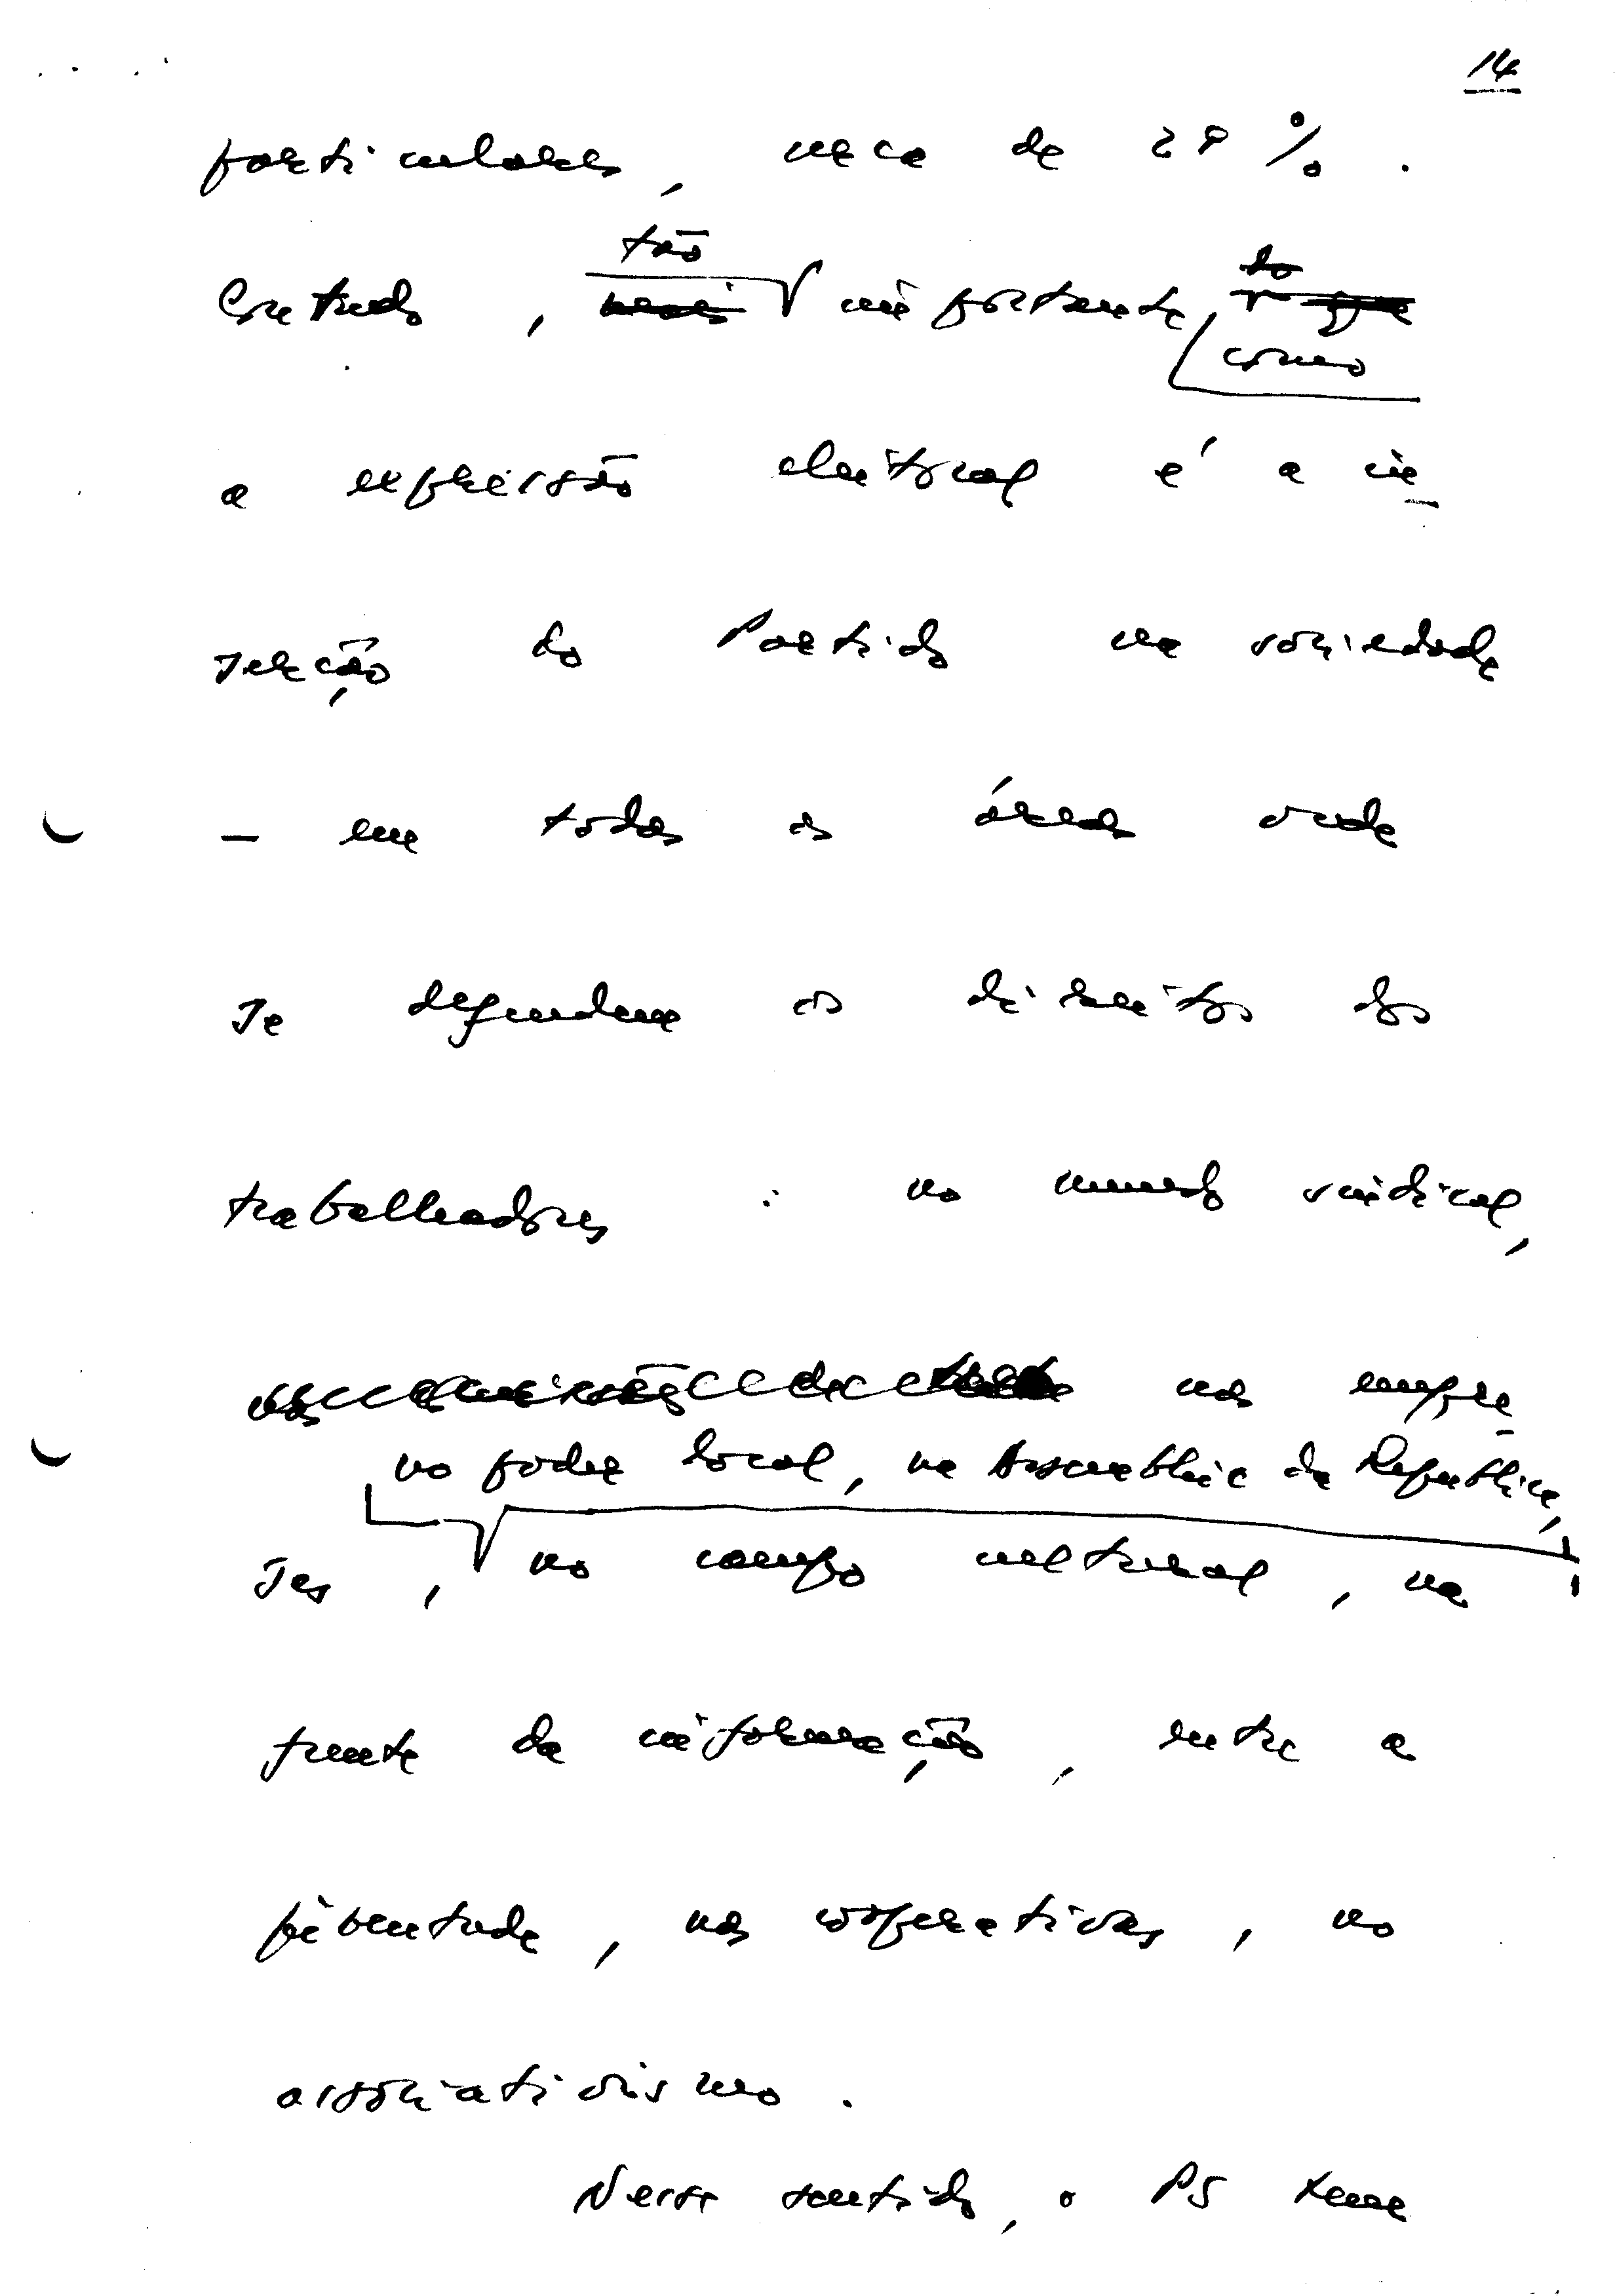 14
particulares, cerca de 28 %.
tão
Contudo, mais importante, do que
como
a expressão eleitoral é a in-
serção do Partido na sociedade
- em todas as áreas onde
se defendem os direitos dos
trabalhadores: no mundo sindical,
nas de nas empre-
no poder local, na Assembleia da República,
sas, no campo cultural, na
frente da informação, entre a
juventude, nas cooperativas, no
associativismo.
Nesse sentido, o PS tem